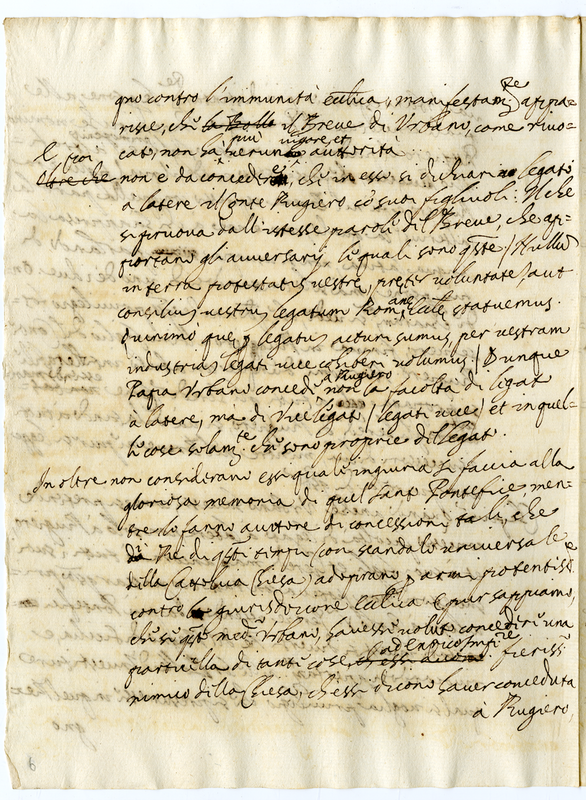 gno contro l'immunità eccl.ica, manifestam.te appa=
risce, chè la Bolla il Breve di Urbano, come rivo=
cato, non hà più veruno vigore, et autorità
E poi
Oltre che non è da concedersi, chè in esso si dichiari legato
à latere il Conte Rugiero co' suoi figliuoli. Il che
si pruova dall'istesse parole del Breve, che ap=
portano gli avversarij, le quali sono q.ste / Nullū
in terra potestatis vestrę, pręter voluntatē, aut
consiliū vestrū legatum Romanę Eccl.ę statuemus.
Quinimò quę p legatū acturi sumus, per vestram
industriā legati vice coħiberi volumus. / Dunque
Papa Urbano concedè à Rugiero non la facoltà di legato
à latere, ma di Vicelegato / legati vice / et in quel=
le cose solam.te che sono proprie del legato.
In oltre non considerano essi quale ingiuria si faccia alla
gloriosa memoria di quel santo Pontefice, men=
tre lo fanno auttore di concessioni tali, che
di Rè di q.sti tempi (con scandalo universale
della Cattolica Chiesa) adoprano p armi potentiss.e
contro la giurisdizione eccl.ica. E pur sappiamo,
che se q.sto med.o Urbano, havesse voluto concedere una
particella di tante cose, ad Enrico Imp.re fierissi
nimico della Chiesa, ch'essi dicono haver conceduta
à Rugiero,
gno
6